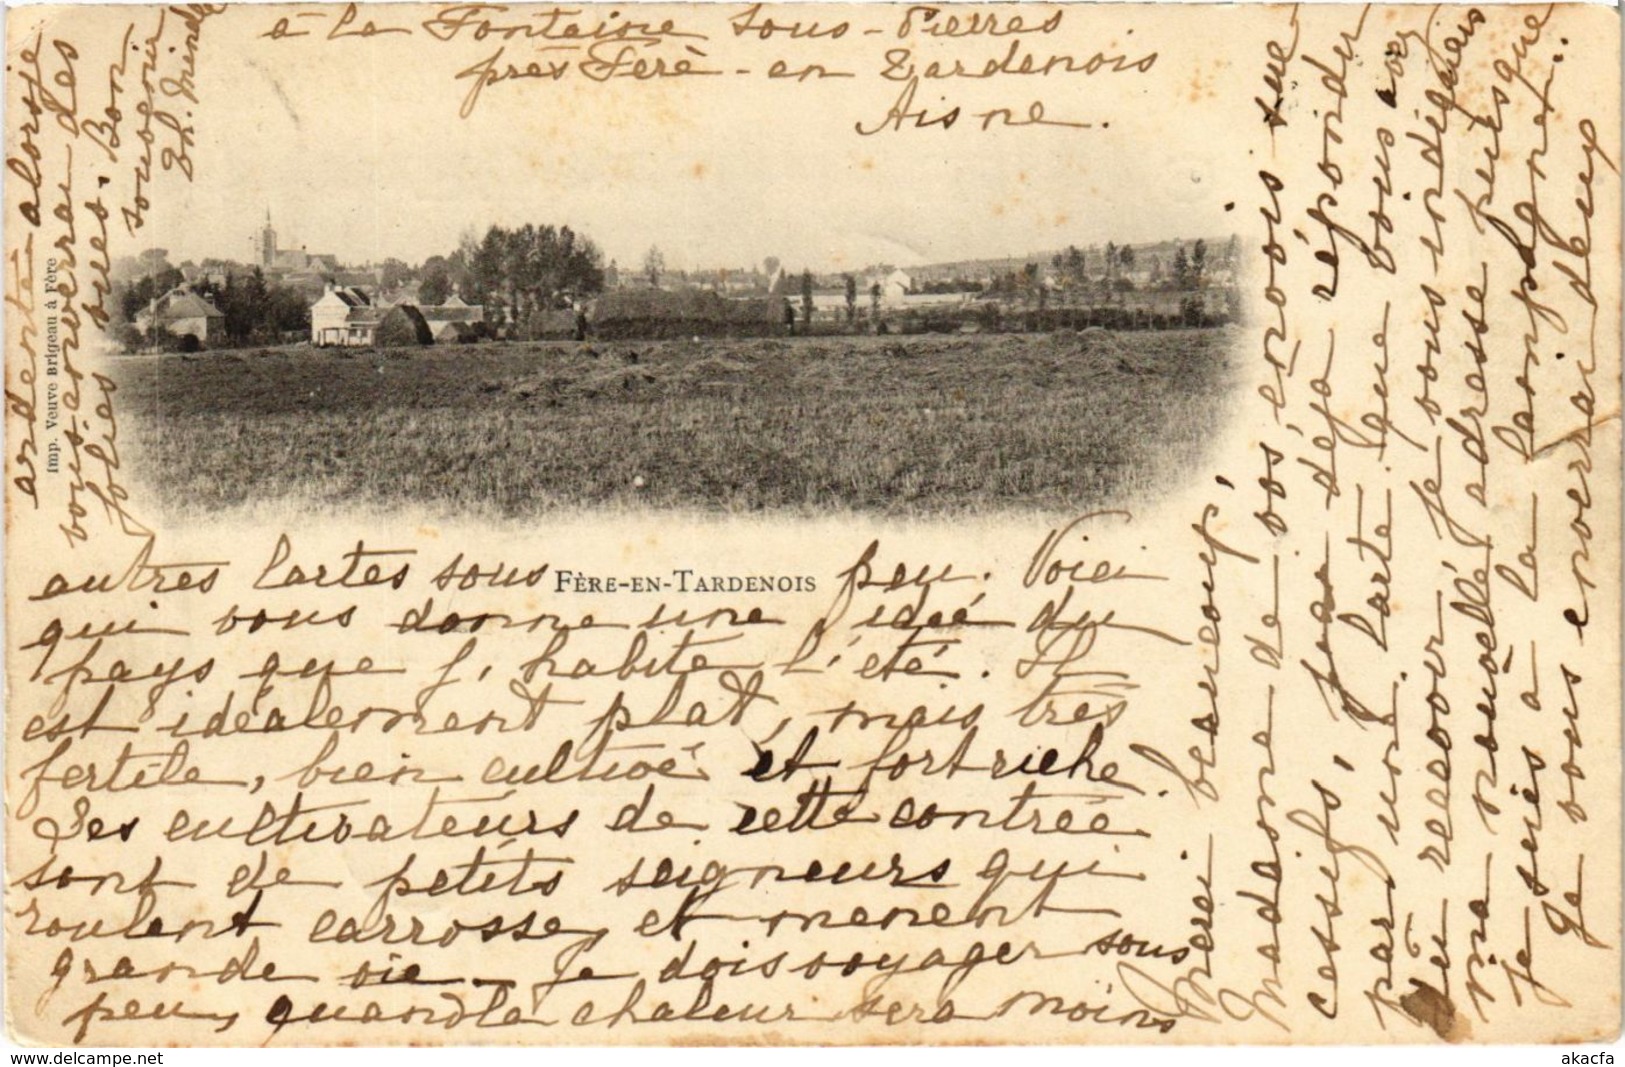 à la Fontaine sous-Pierres
près Féré-en Tardenois
Aisne.
Merci beaucoup,
Madame de vos envois suc
cessifs, j'ai déjà répondu
par une Carte que vous avez
dû recevoir. Je vous indiquais
ma nouvelle adresse puisque
je suis à la Campagne.
Je vous enverrai deux
autres Cartes sous peu. Voici
qui vous donne une idée du
pays que j'habite l'été. Il
est idéalement plat, mais très
fertile, bien cultivé et fort riche.
Les cultivateurs de cette contrée
sont de petits seigneurs qui
roulent carrosse, et mènent
grande vie. Je dois voyager sous
peu, quand la chaleur sera moins
ardente alors je
vous enverrai des
jolies vues. Bon
souvenir
FÈRE-EN-TARDENOIS
Imp. Veuve Brigeau à Fère
delcampe.net
akacfa